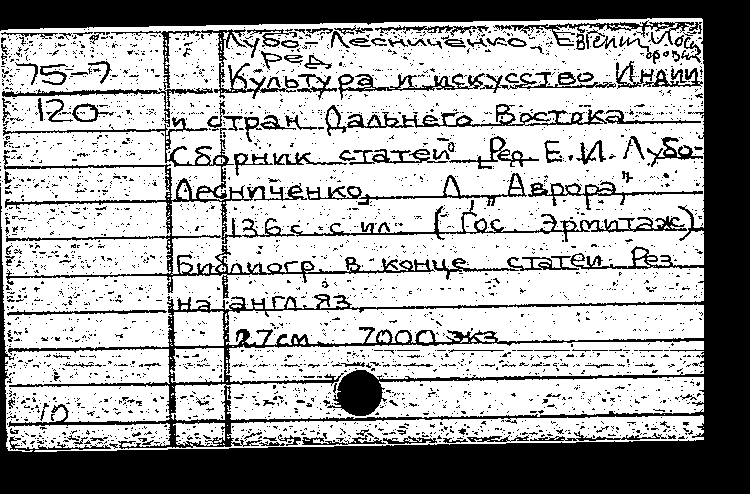 Лубо-Лесниченко, Евгений Иосифович
ред.
75-7 Культура и искусство Индии
120 и стран Дальнего Востока.
Сборник статей. [Ред. Е.И. Лубо-
Лесниченко]. Л., "Аврора,"
136 с. с ил. (Гос. Эрмитаж)
Библиогр. в конце статей. Рез.
на англ. яз.
27см. 7000 экз.
10